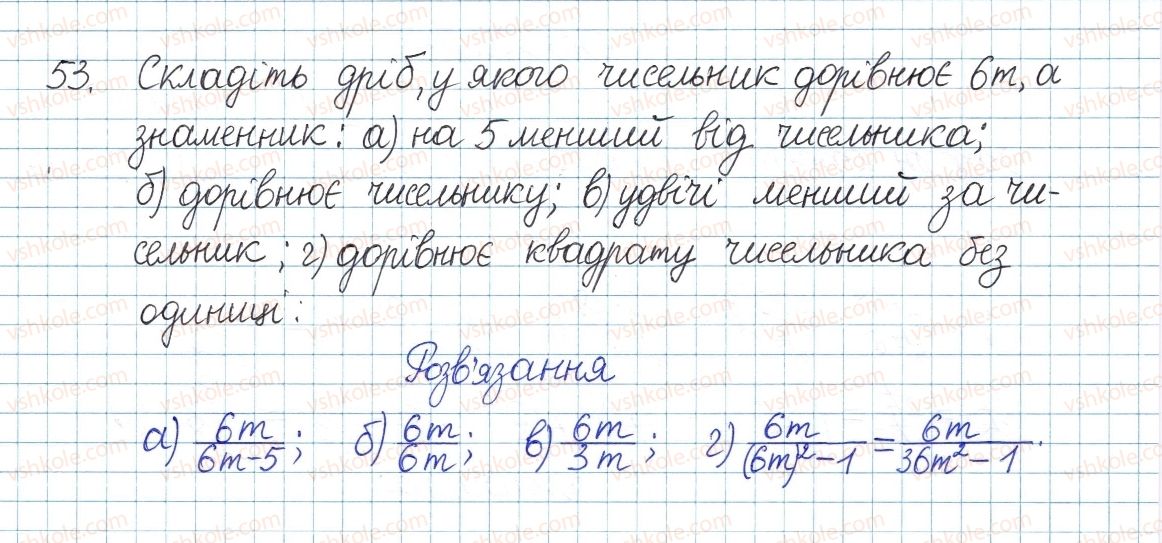 53. Складіть дріб, у якого чисельник дорівнює 6m, а
знаменник: а) на 5 менший від чисельника;
б) дорівнює чисельнику; в) удвічі менший за чи-
сельник; г) дорівнює квадрату чисельника без
одиниці:
Розв'язання
а) 6m/(6m-5); б) 6m/6m; в) 6m/3m; г) 6m/((6m)²-1) = 6m/(36m²-1).